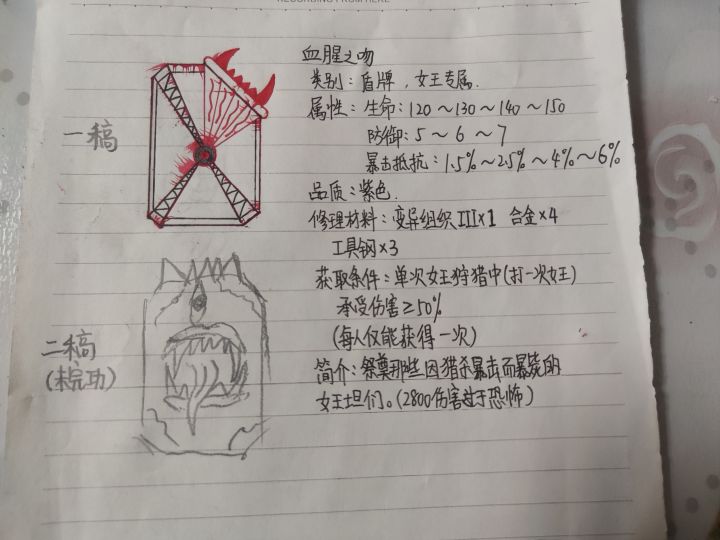 RECORDING FROM HERE
血腥之吻
类别：盾牌，女王专属.
属性：生命：120～130～140～150
防御：5～6～7
暴击抵抗：1.5%～2.5%～4%～6%
品质：紫色.
修理材料：变异组织III×1 合金×4
工具钢×3
获取条件：单次女王狩猎中(打一次女王)
承受伤害≥50%
(每人仅能获得一次)
简介：祭奠那些因猎杀暴击而暴毙的
女王坦们。(2800伤害过于恐怖)
一稿
二稿
(未完功)